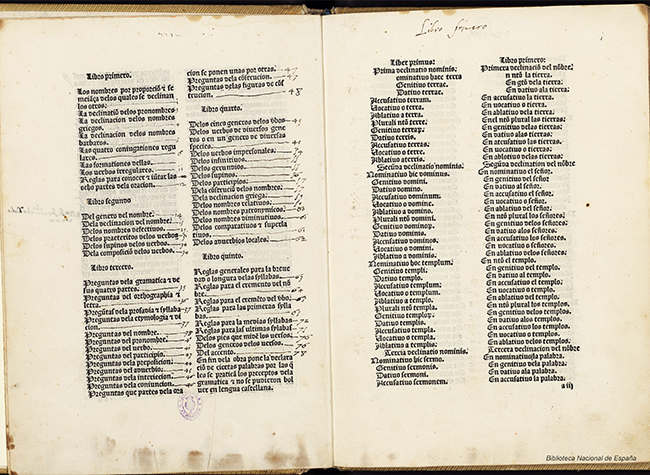 Libro primero.
Los nombres por proporciõ ⁊ se
mejãça delos quales se declinan
los otros:
La declinatiõ delos pronombres
La declinacion delos nombres
griegos.
La declinacion delos nombres
barbaros.
Las quatro conjugationes regu
lares.
Las formationes dellas.
Los verbos irregulares.
Reglas para conocer ⁊ iũtar las
ocho partes dela oracion.
Libro segundo
Del genero del nombre.
Dela declinacion del nombre.
Delos nombres defectivos.
Delos praeteritos delos verbos
Delos supinos delos verbos.
Dela composiciõ delos verbos.
Libro tercero.
Preguntas dela gramatica ⁊ de
sus quatro partes.
Preguntas del orthographia ⁊
letra.
Pregũtas dela prosodia ⁊ syllaba
Preguntas dela etymologia ⁊ di
cion.
Preguntas del nombre.
Preguntas del pronombre.
Preguntas del verbo.
Preguntas del participio.
Preguntas dela preposicion.
Preguntas del adverbio.
Preguntas dela interjecion.
Preguntas dela conjuncion.
Preguntas que partes dela ora
cion se ponen unas por otras. 47
Preguntas dela cõstrucion. 47
Preguntas delas figuras de cõs
trucion. 48
Libro quarto.
Delos cinco generos delos vbos
Delos verbos de diverso gene
ro o en un genero de diversas
species.
Delos verbos impersonales.
Delos infinitivos.
Delos gerundios.
Delos supinos.
Delos participios.
Dela cõstruciõ delos nombres.
Dela declinacion griega.
Delos nombres relativos.
Delos nombres patronymicos
Delos nombres diminutivos.
Delos comparativos ⁊ superla
tivos.
Delos adverbios locales.
Libro quinto.
Reglas generales para la breve
dad o longura delas syllabas.
Reglas para el cremento del nõ
bre.
Reglas para el cremẽto del vbo.
Reglas para las primeras sylla
bas.
Reglas para las medias syllabas
Reglas para las ultimas syllabas
Delos pies que mide los versos
Delos generos delos versos.
Del accento. 78
En fin dela obra pone la declara
ciõ de ciertas palabras por las q̃
les se praticã los preceptos dela
gramatica ⁊ no se pudieron bol
ver en lengua castellana.
Libro primero
Liber primus:
Prima declinatio nominis.
Nominatiuo haec terra
Genitiuo terrae.
Datiuo terrae.
Accusatiuo terram.
Uocatiuo o terra.
Ablatiuo a terra.
Plurali ntõ terrae.
Genitiuo terraꝝ.
Datiuo terris.
Accusatiuo terras.
Uocatiuo o terrae.
Ablatiuo a terris.
Secũda declinatio nominis.
Nominatiuo hic dominus.
Genitiuo domini.
Datiuo domino.
Accusatiuo dominum.
Uocatiuo o domine.
Ablatiuo a domino.
Plurali ntõ domini.
Genitiuo dominoꝝ.
Datiuo dominis.
Accusatiuo dominos.
Uocatiuo o domini.
Ablatiuo a dominis.
Nominatiuo hoc templum.
Genitiuo templi.
Datiuo templo.
Accusatiuo templum.
Uocatiuo o templum.
Ablatiuo a templo.
Plurali ntõ templa.
Genitiuo temploꝝ.
Datiuo templis.
Accusatiuo templa.
Uocatiuo o templa.
Ablatiuo a templis.
Tercia declinatio nominis.
Nominatiuo hic sermo.
Genitiuo sermonis.
Datiuo sermoni.
Accusatiuo sermonem.
Libro primero:
Primera declinaciõ del nõbre.
En ntõ la tierra.
En gtõ dela tierra.
En datiuo ala tierra.
En accusatiuo la tierra.
En vocatiuo o tierra.
En ablatiuo dela tierra.
Enel ntõ plural las tierras.
En genitiuo delas tierras.
En datiuo alas tierras.
En accusatiuo las tierras.
En vocatiuo o tierras.
En ablatiuo delas tierras.
Segũda declinacion del nõbre
En nominatiuo el señor.
En genitiuo del señor.
En datiuo al señor.
En accusatiuo el señor.
En vocatiuo o señor.
En ablatiuo del señor.
En ntõ plural los señores.
En genitiuo delos señores.
En datiuo alos señores.
En accusatiuo los señores.
En vocatiuo o señores.
En ablatiuo delos señores.
En ntõ el templo.
En genitiuo del templo.
En datiuo al templo.
En accusatiuo el templo.
En vocatiuo o templo.
En ablatiuo del templo.
En ntõ plural los templos.
En genitiuo delos templos.
En datiuo alos templos.
En accusatiuo los templos.
En vocatiuo o templos.
En ablatiuo delos templos.
Tercera declinacion del nõbre
En nominatiuo la palabra.
En genitiuo dela palabra.
En datiuo ala palabra.
En accusatiuo la palabra.
a iij
Biblioteca Nacional de España